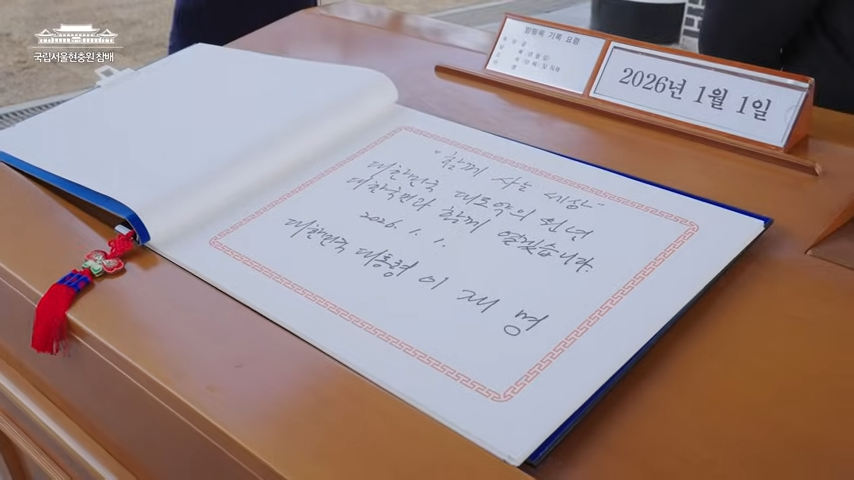 국립서울현충원 참배
방명록 기록 요령
2026년 1월 1일
"함께 사는 세상"
대한민국 대도약의 원년
대한국민과 함께 열겠습니다.
2026. 1. 1.
대한민국 대통령 이 재 명